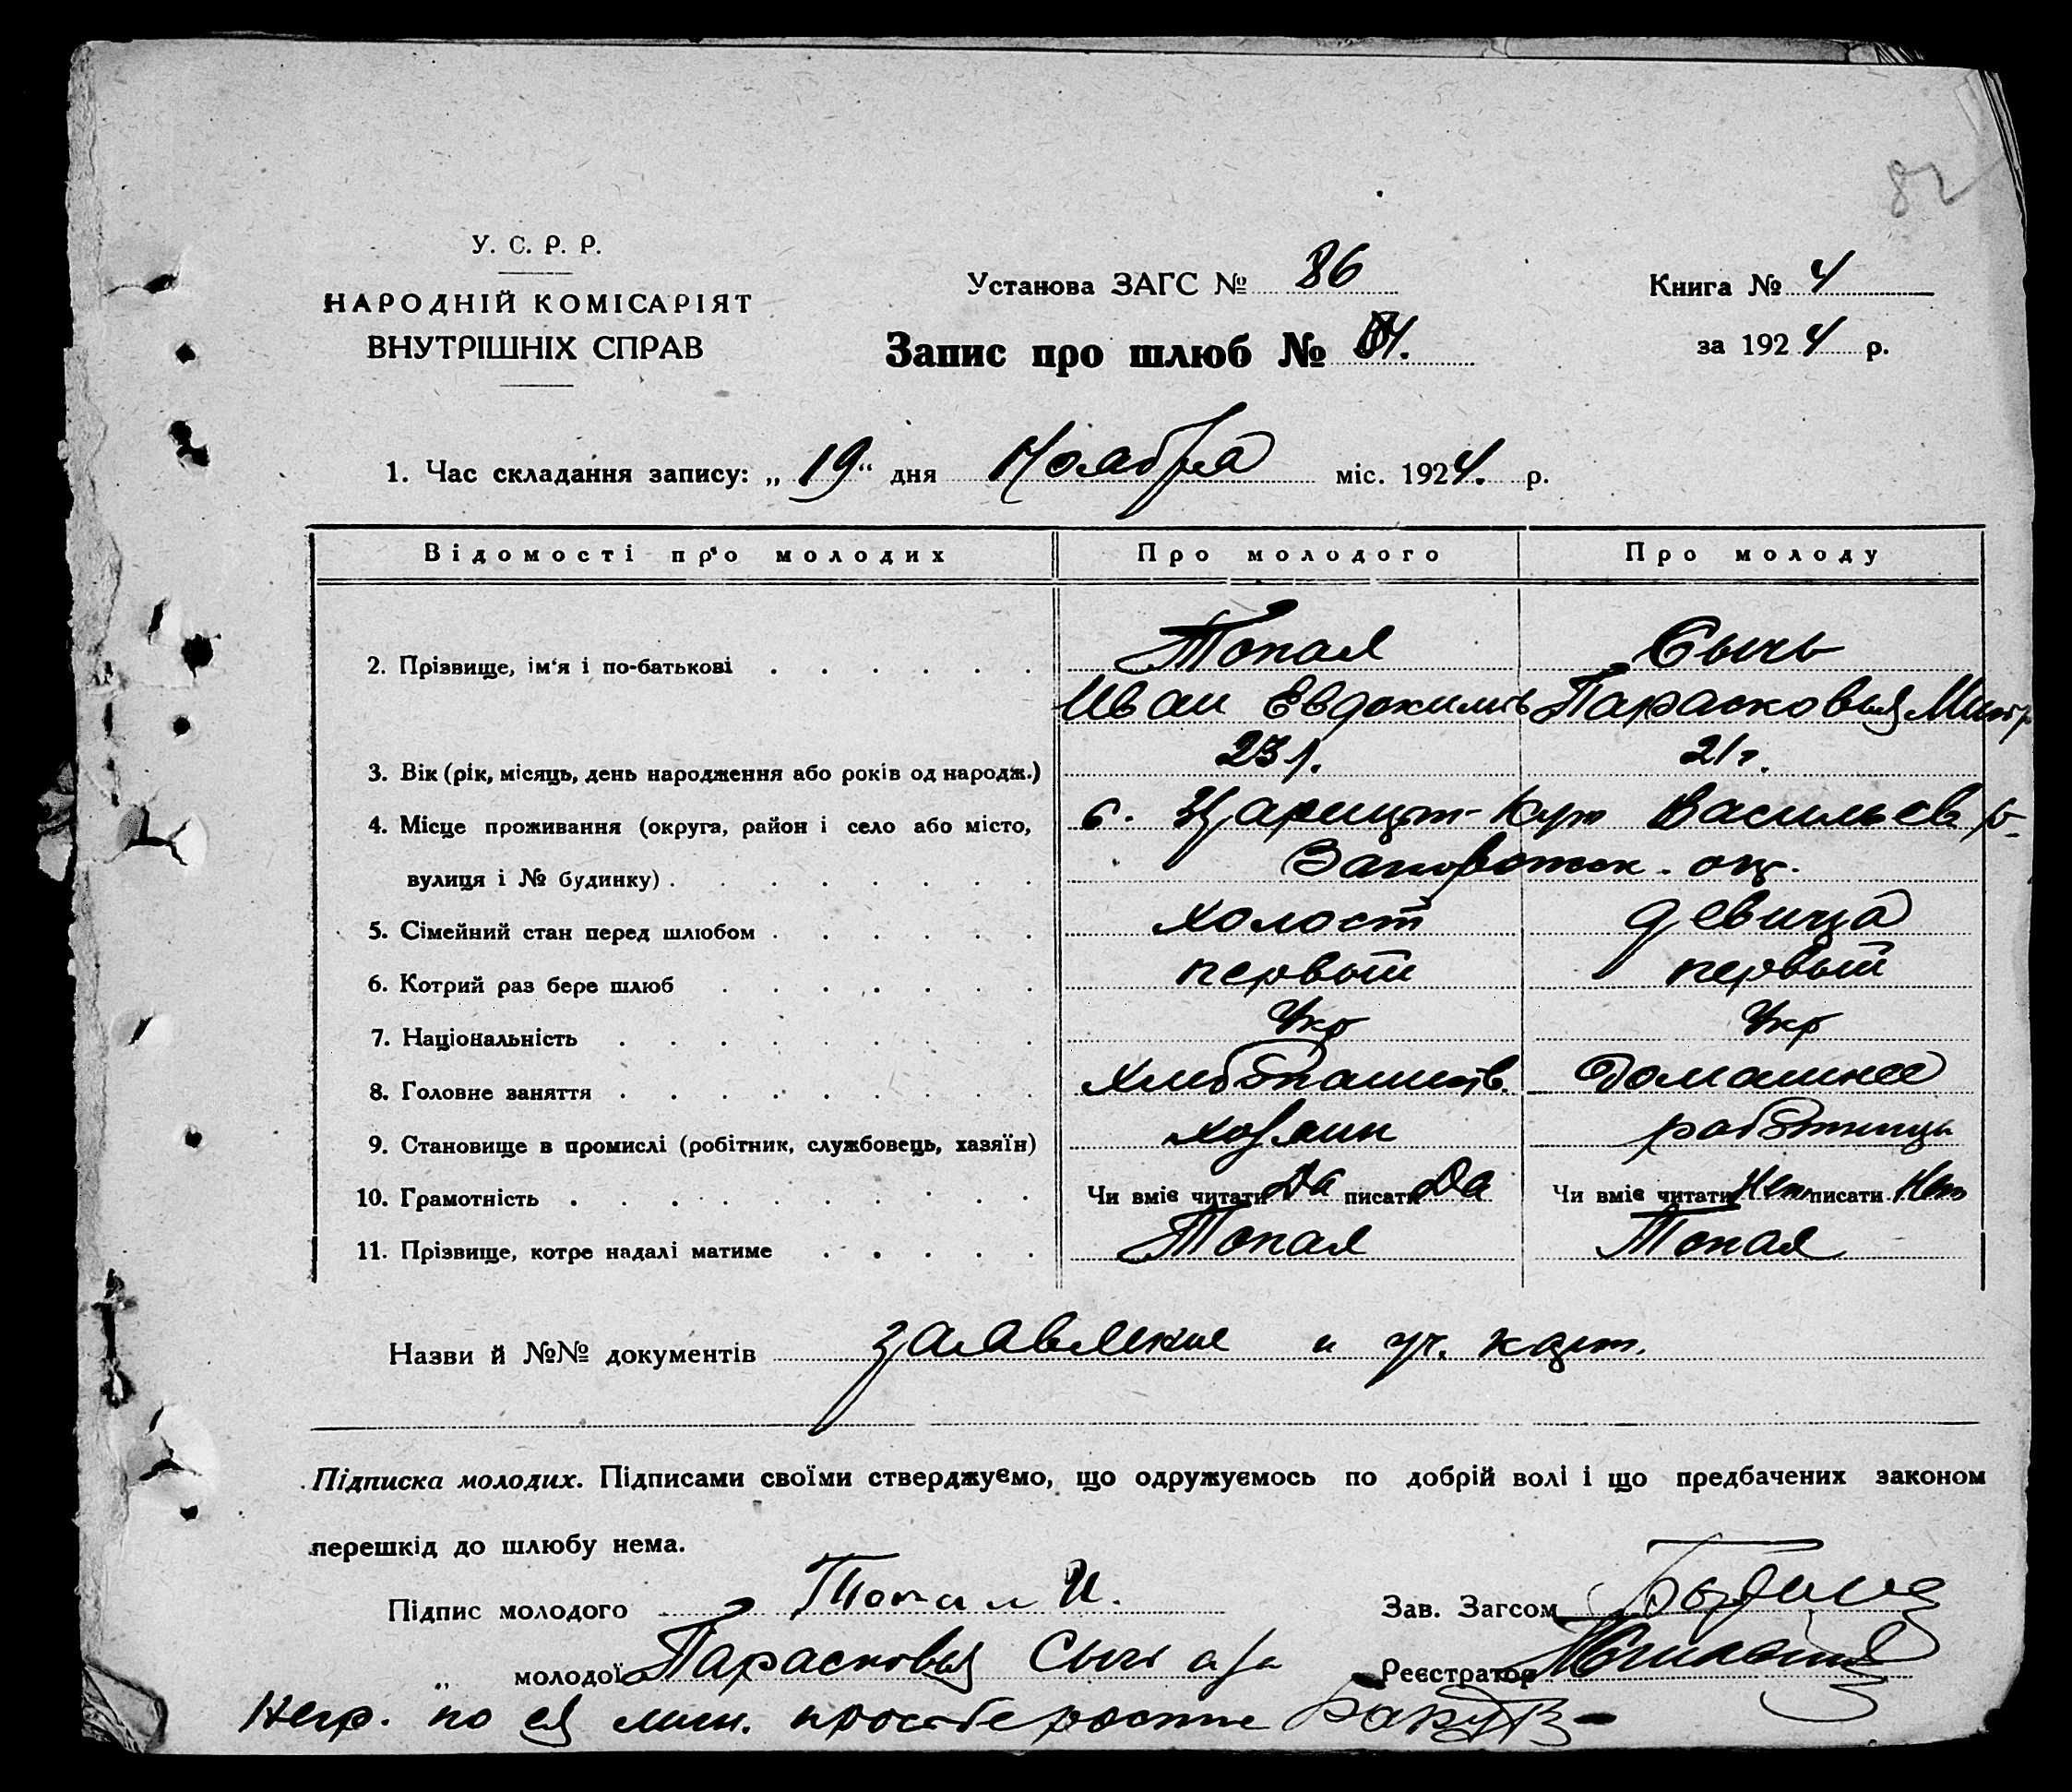 82
У. С. Р. Р.
НАРОДНІЙ КОМІСАРІЯТ
ВНУТРІШНІХ СПРАВ
Установа ЗАГС № 86
Запис про шлюб №
Книга № 4
за 1924 р.
1. Час складання запису: „19“ дня Ноября міс. 1924. р.
Відомості про молодих Про молодого Про молоду
2. Прізвище, ім‘я і по-батькові Топал Сычь
Иван Евдокимов Парасковья Митр
3. Вік (рік, місяць, день народження або років од народж.) 23 г. 21 г.
4. Місце проживання (округа, район і село або місто, с. Царицын-Кут Васильев р-
вулиця і № будинку) Запорожск. ок.
5. Сімейний стан перед шлюбом холост девица
6. Котрий раз бере шлюб первый первый
7. Національність Укр Укр
8. Головне заняття хлебопашеств. Домашнее
9. Становище в промислі (робітник, службовець, хазяїн) хозяин работница
10. Грамотність Чи вміє читати Да писати Да Чи вміє читати Нет писати Нет
11. Прізвище, котре надалі матиме Топал Топал
Назви й №№ документів заявление и уч. карт.
Підписка молодих. Підписами своїми стверджуємо, що одружуємось по добрій волі і що предбачених законом
перешкід до шлюбу нема.
Підпис молодого Топал И. Зав. Загсом
„ молодої Парасковья Сычь а/а Реєстратор
Негр. по ея личн. просьбе